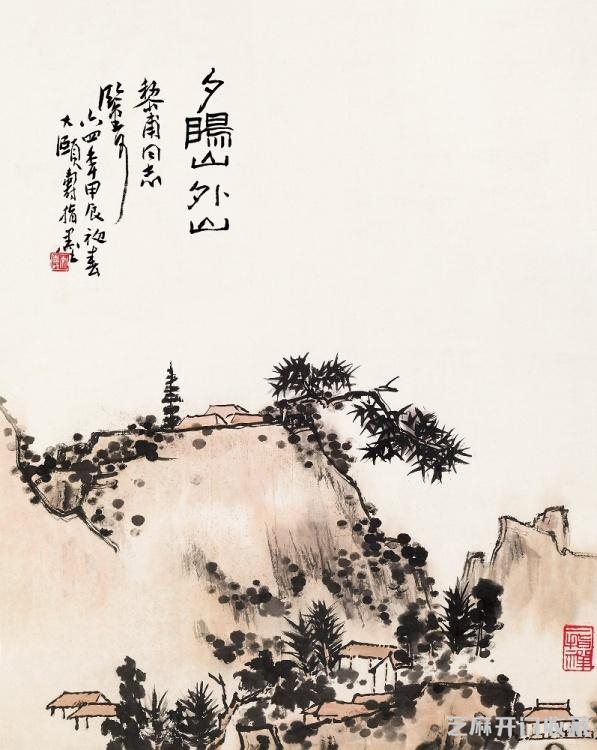 夕陽山外山
黎甫同志
鑒可
六四年甲辰初春
大頤壽指墨
芝麻开门收藏